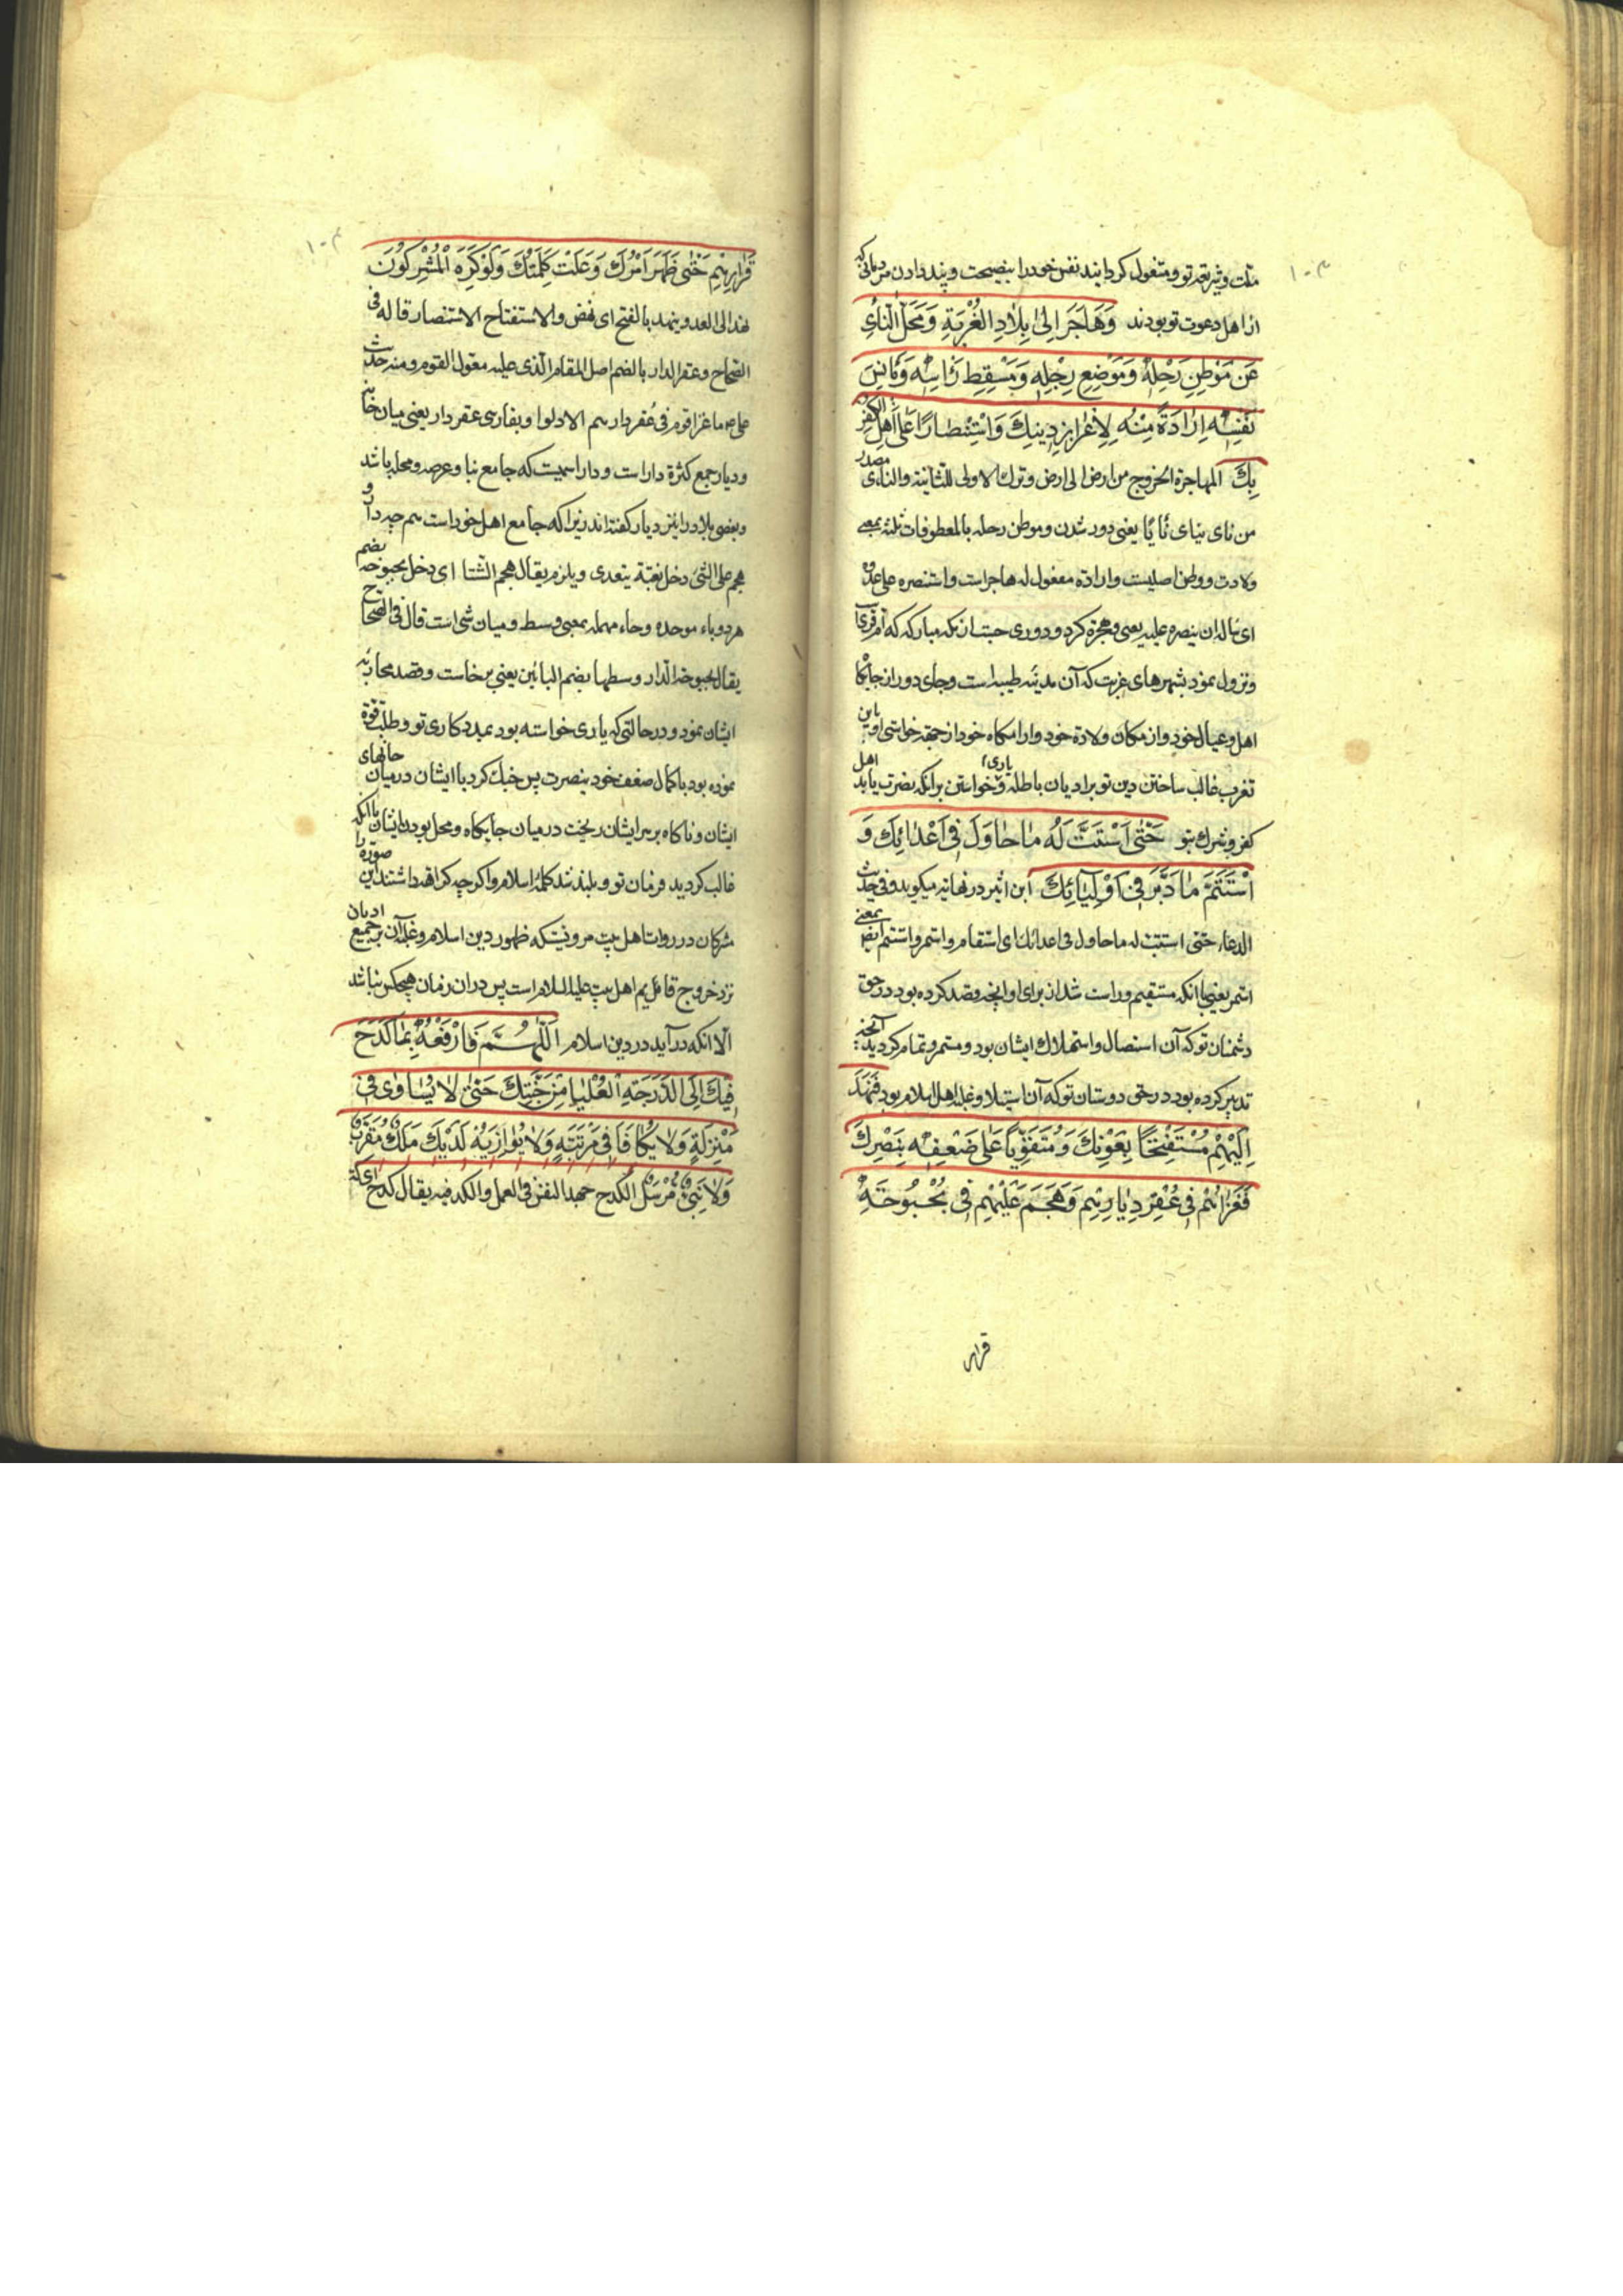 ملت و شریعه تو و مشغول کردانید نفس خود را بنصیحت و پند دادن مردمانی که
از اهل دعوت تو بودند وَهَاجَرَ اِلىٰ بِلَادِ الغُرْبَةِ وَمَحَلِّ النَّأْىِ
عَنْ مَوْطِنِ رَحْلِهٖ وَمَوْضِعِ رِجْلِهٖ وَمَسْقِطِ رَاْسِهٖ وَمَاْنَسِ
نَفْسِهٖ اِرَادَةً مِنْهُ لِاِعْزَازِ دِينِكَ وَاسْتِنْصَارًا عَلىٰ اَهْلِ الكُفْرِ
بِكَ المهاجرة الخروج من ارض الى ارض و ترك الاولى للثانية والنأى مصدر
من نأى ینأى نأیا یعنی دور شدن و موطن رحله با لمعطوفات ثلثه بمعنی
ولادت و وطن اصلیست و ارادة مفعول له هاجر است و استنصره على عدوه
اى ساله ان ینصره علیه یعنی و هجرة کرد و دوری جست از مکه مبارکه که ام قری است
و نزول نمود بشهرهای غربت که آن مدینه طیبه است و جای دور از جایگاه
اهل و عیال خود و از مکان ولادة خود و ارامگاه خود از جهة خواستن او باین
تغرب غالب ساختن دین تو بر ادیان باطله و یاری خواستن بر آنکه نصرت یابد اهل
کفر و شرك بتو حَتّىٰ اسْتَتَبَّ لَهُ مَا حَاوَلَ فِى اَعْدَائِكَ وَ
اسْتَتَمَّ مَا دَبَّرَ فِى اَوْلِيَائِكَ ابن اثیر در نهایه میکوید و فی حدیث
الدعاء حتی استتب له ما حاول فی اعدائك ای استقام و استمر و استتم ایضا بمعنی
استمر یعنی تا آنکه مستقیم و راست شد از برای او آنچه قصد کرده بود در حق
دشمنان تو که آن استیصال و استهلاك ایشان بود و مستمر و تمام کردید آنچه
تدبیر کرده بود در حق دوستان تو که آن استیلا و غلبه اهل اسلام بود فَنَهَدَ
اِلَيْهِمْ مُسْتَفْتِحًا بِعَوْنِكَ وَمُتَقَوِّيًا عَلىٰ ضَعْفِهٖ بِنَصْرِكَ
فَغَزَاهُمْ فِى عُقْرِ دِيَارِهِمْ وَهَجَمَ عَلَيْهِمْ فِى بُحْبُوحَةِ
قرار
قَرَارِهِمْ حَتّىٰ ظَهَرَ اَمْرُكَ وَعَلَتْ كَلِمَتُكَ وَلَوْ كَرِهَ الْمُشْرِكُونَ
نهد الى العدو ینهد بالفتح ای نهض والاستفتاح الاستنصار قاله فی
الصحاح و عقر الدار بالضم اصل المقام الذی علیه معول القوم و منه حدیث
على ع ما غزا قوم فى عُقر دارهم الا ذلوا و بفارسی عقر دار یعنی میان خانه
و دیار جمع کثرة دار است و دار اسمیست که جامع بنا و عرصه و محله باشد و
و بعضی بلاد را نیز دیار کفته اند زیرا که جامع اهل خود است همچه دار و
هجم على الشئ دخل بغتة یتعدی و یلزم یقال هجم الشتا ای دخل بحبوحه بضم
هر دو باء موحده و حاء مهمله بمعنی وسط و میان شی است قال فی الصحاح
یقال بحبوحة الدار وسطها بضم البائین یعنی برخاست و قصد محاربه
ایشان نمود و در حالتی که یاری خواسته بود بمددکاری تو و طلب قوة
نموده بود با کمال ضعف خود بنصرت پس جنك کرد با ایشان در میان خانهای
ایشان و ناکاه بر سر ایشان ریخت در میان جایگاه و محل بودن ایشان تا آنکه
غالب کردید فرمان تو و بلند شد کلمه اسلام و اکر چه کراهة داشتند این صورة را
مشرکان در روایت اهل بیت مرویست که ظهور دین اسلام و غلبه آن بر جمیع ادیان
نزد خروج قائم اهل بیت علیه السلام است پس در آن زمان هیچکس نباشد
الا آنکه در آید در دین اسلام اَللّٰهُمَّ فَارْفَعْهُ بِمَا كَدَحَ
فِيكَ اِلَى الدَّرَجَةِ الْعُلْيَا مِنْ جَنَّتِكَ حَتّىٰ لَا يُسَاوىٰ فِى
مَنْزِلَةٍ وَلَا يُكَافَا فِى مَرْتَبَةٍ وَلَا يُوَازِيَهُ لَدَيْكَ مَلَكٌ مُقَرَّبٌ
وَلَا نَبِىٌّ مُرْسَلٌ الکدح جهد النفس فی العمل والکد فیه یقال کدح